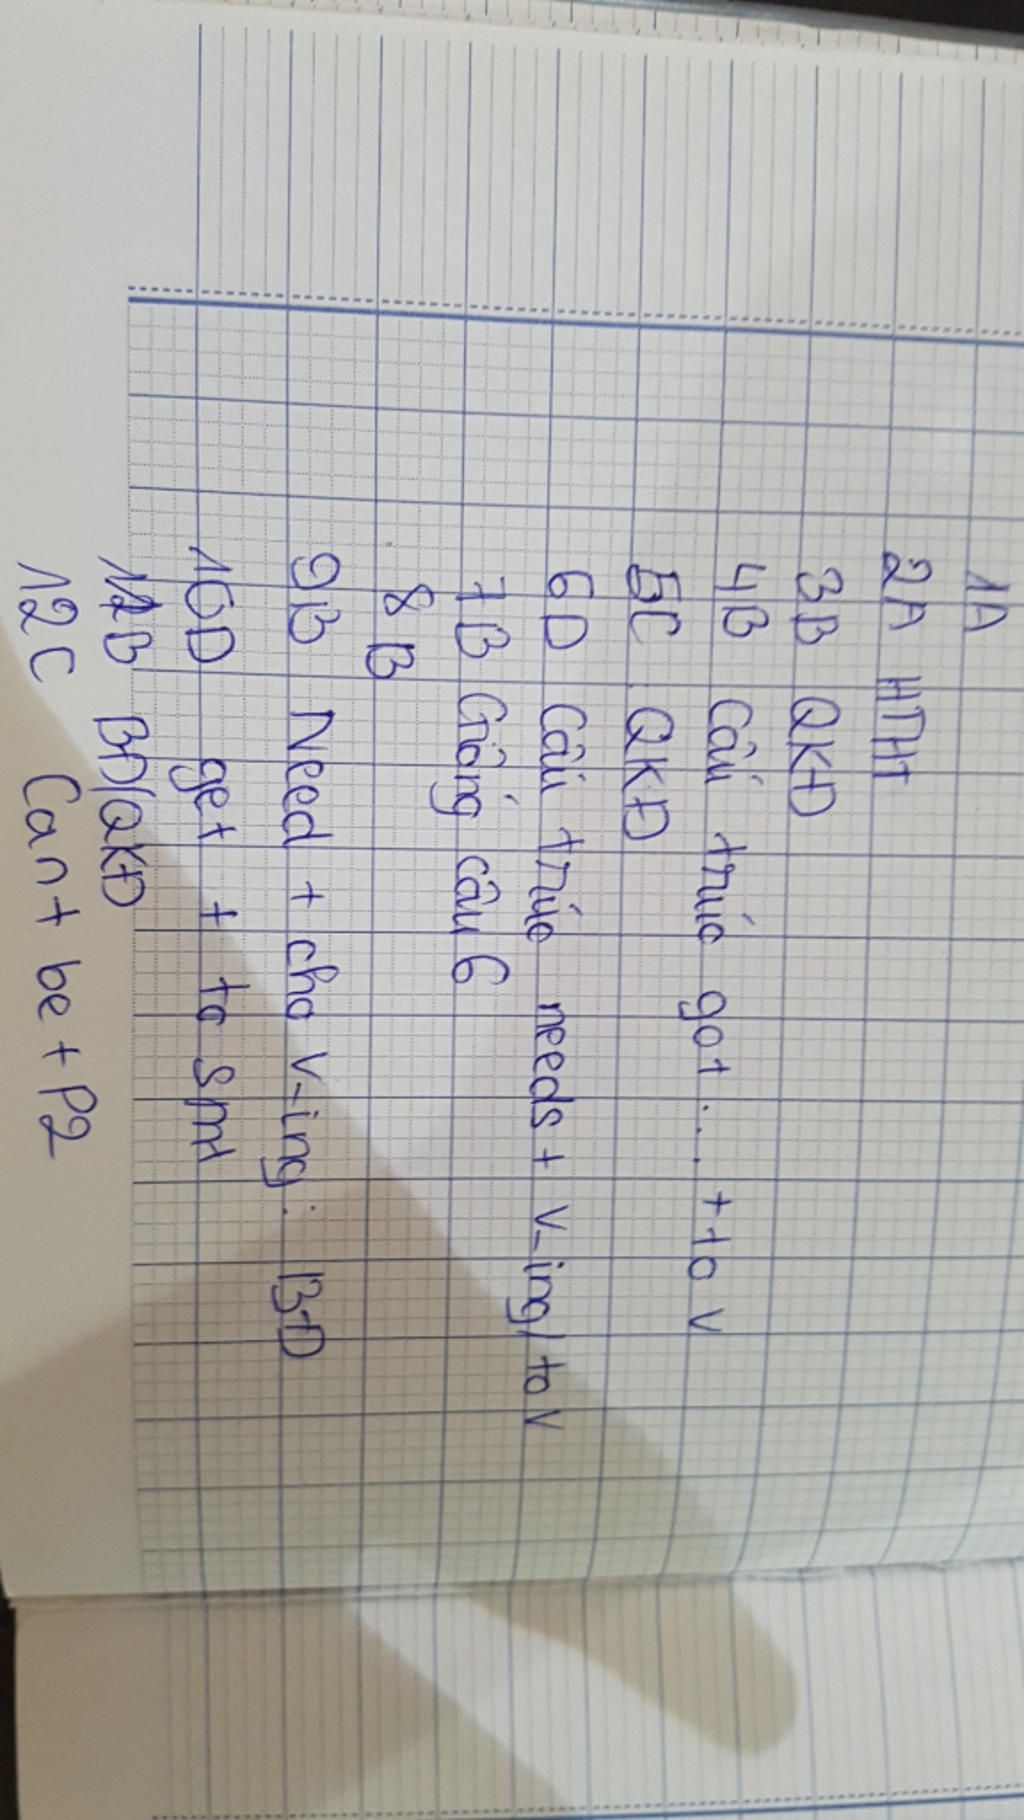 1A
2A HTHT
3B QKĐ
4B Cấu trúc got .... + to V
5C QKĐ
6D Cấu trúc needs + V-ing / to V
7B Giống câu 6
8B
9B Need + cho V-ing : BĐ
10D get + to smt
12B BĐ/QKĐ
12C Cant be + P2